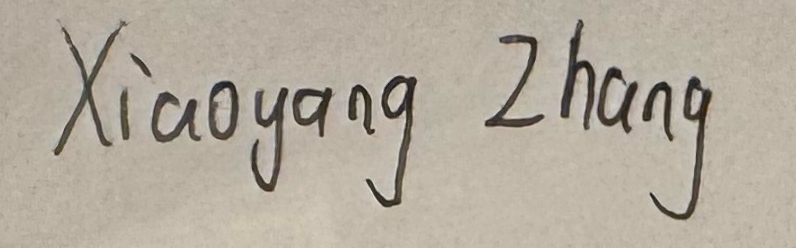 Xiaoyang Zhang